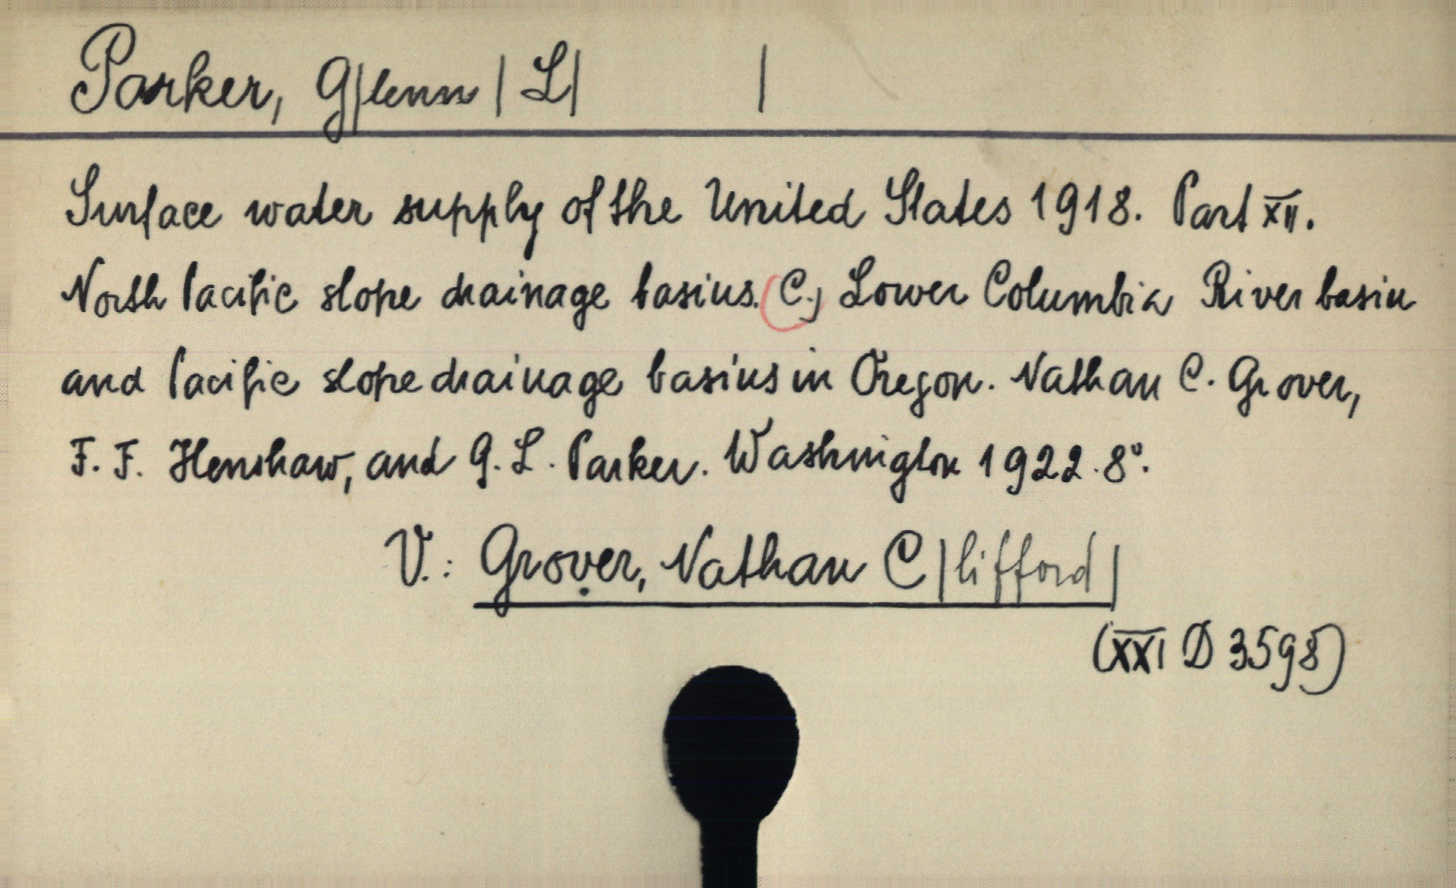 Parker, G|lenn| L| |
Surface water supply of the United States 1918. Part XII.
North Pacific slope drainage basins. (C.) Lower Columbia River basin
and Pacific slope drainage basins in Oregon. Nathan C. Grover,
F. F. Henshaw, and G. L. Parker. Washington 1922. 8°.
V.: Grover, Nathan C|lifford|
(XXI D 3598)